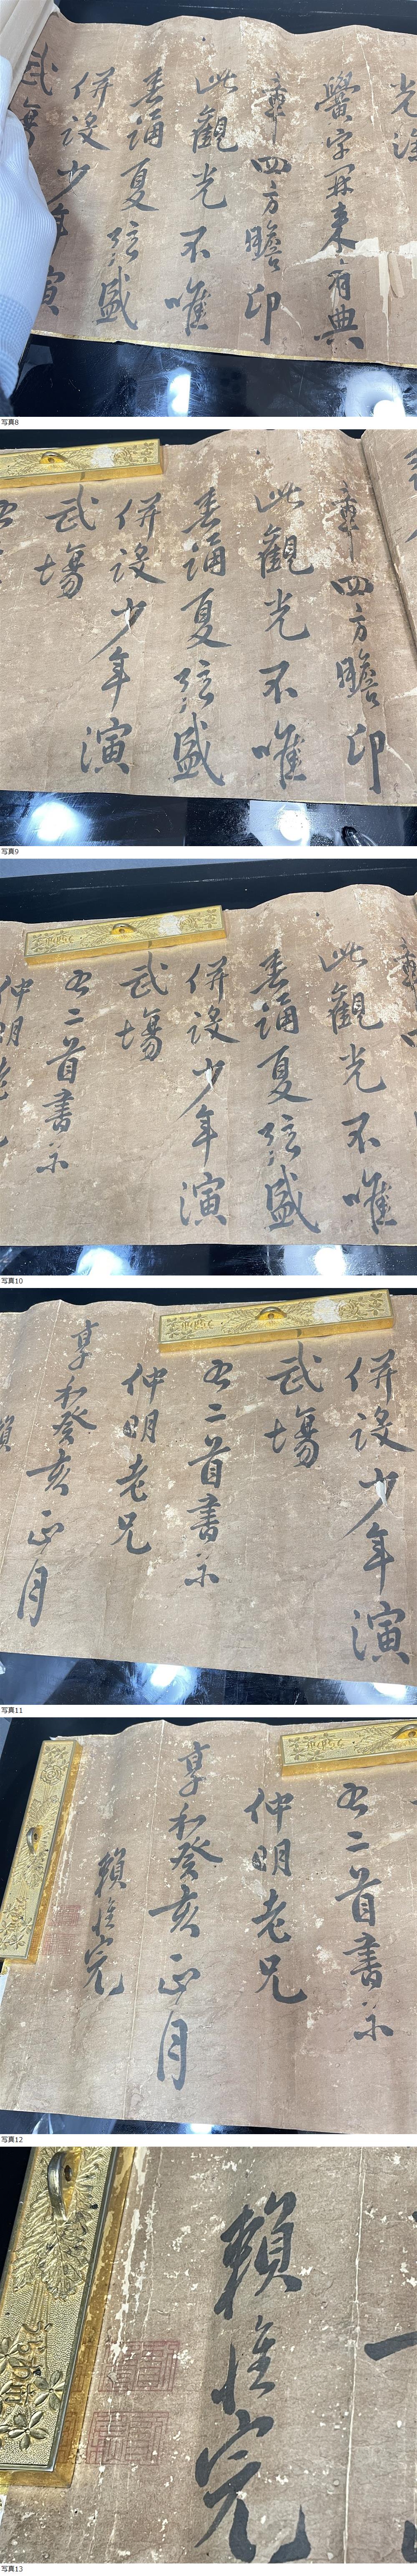 黌字開来有典
章四方瞻印
此観光不唯
春誦夏弦盛
併設少年演
武
写真8
章四方瞻印
此観光不唯
春誦夏弦盛
併設少年演
武場
写真9
此観光不唯
春誦夏弦盛
併設少年演
武場
右二首書示
仲明老
写真10
併設少年演
武場
右二首書示
仲明老兄
享和癸亥正月
頼
写真11
右二首書示
仲明老兄
享和癸亥正月
頼惟完
写真12
頼惟完
写真13